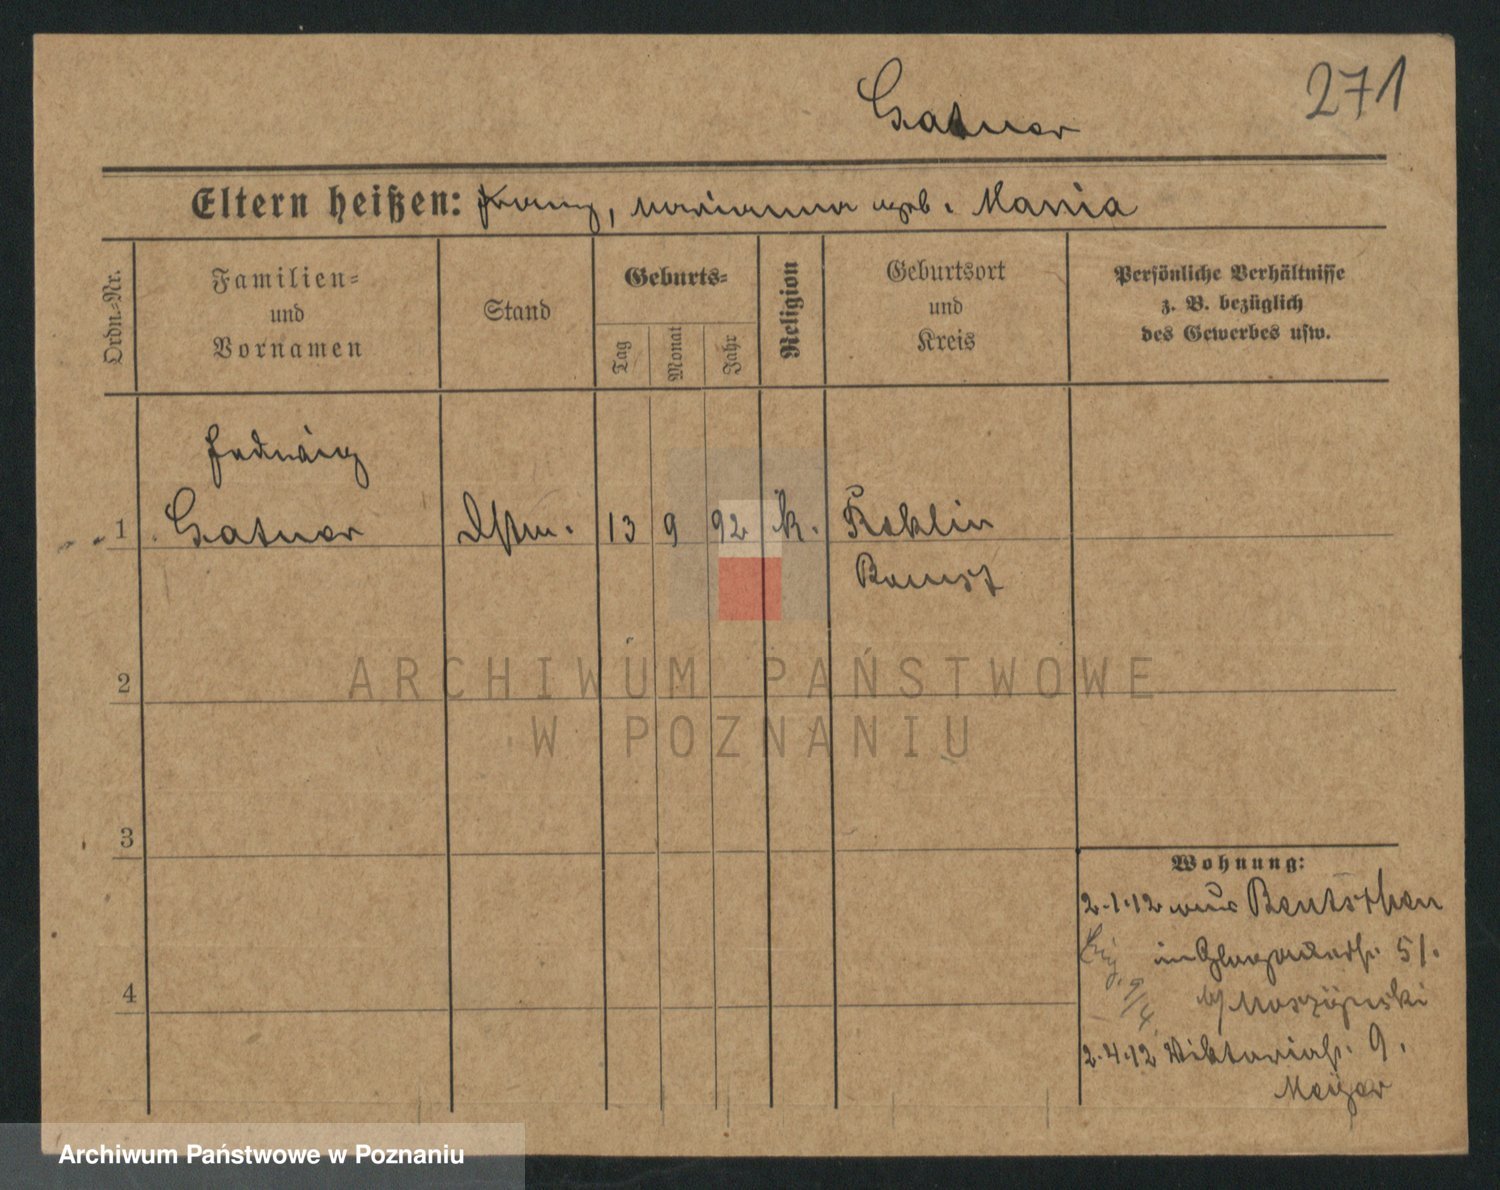 Gatner
271
Eltern heißen: Franz, Marianna geb. Mania
Ordn.-Nr.
Familien-
und
Vornamen
Stand
Geburts-
Tag
Monat
Jahr
Religion
Geburtsort
und
Kreis
Persönliche Verhältnisse
z. B. bezüglich
des Gewerbes usw.
Hedwig
1 Gatner Dstm. 13 9 92 k. Köblin
Bomst
2
3
4
ARCHIWUM PAŃSTWOWE
W POZNANIU
Wohnung:
2.1.12 aus Bentschen
in Glogauerstr. 51.
b/ Moszÿnski
9/4.
2.4.12 Viktoriastr. 9.
Meÿer
Archiwum Państwowe w Poznaniu